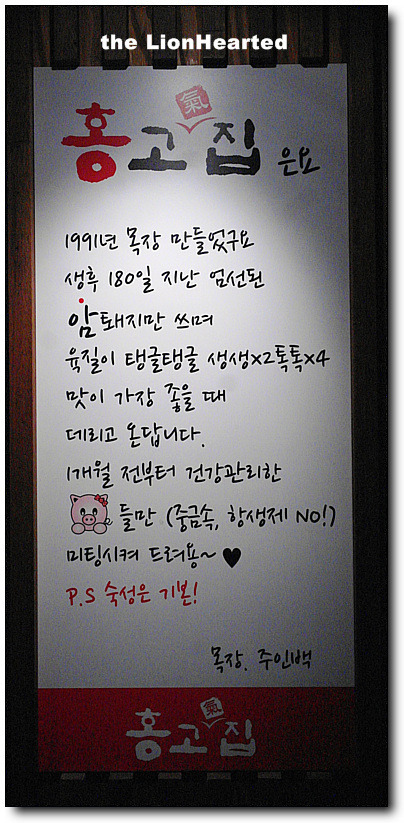 the LionHearted
홍고氣집 은요
1991년 목장 만들었구요
생후 180일 지난 엄선된
암퇘지만 쓰며
육질이 탱글탱글 생생x2톡톡x4
맛이 가장 좋을 때
데리고 온답니다.
1개월 전부터 건강관리한
들만 (중금속, 항생제 NO!)
미팅시켜 드려용~ ♥
P.S 숙성은 기본!
목장. 주인백
홍고氣집